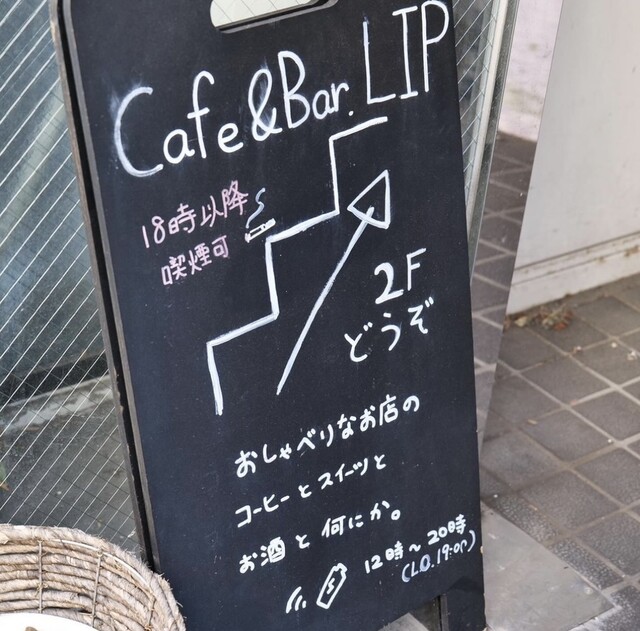 Cafe&Bar. LIP
18時以降
喫煙可
2F
どうぞ
おしゃべりなお店の
コーヒーとスイーツと
お酒と何にか。
12時～20時
(L.O.19:00)